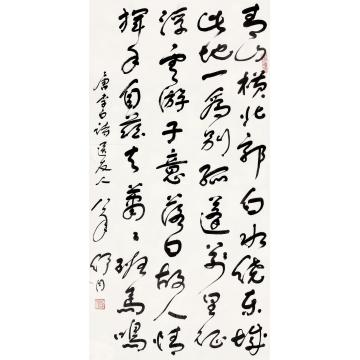 青山横北郭白水绕东城
此地一为别孤蓬万里征
浮云游子意落日故人情
挥手自兹去萧萧班马鸣
唐李白诗送友人 舒同